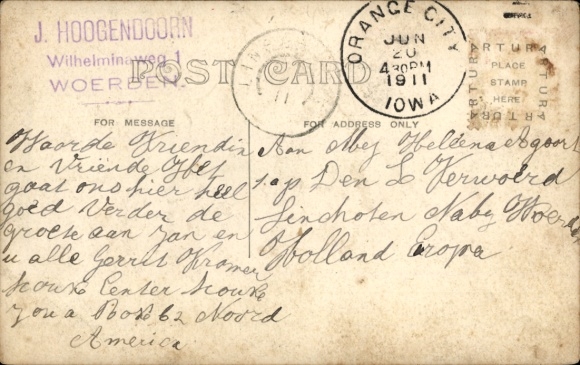 J. HOOGENDOORN
Wilhelminaweg 1
WOERDEN.
POST CARD
ORANGE CITY
JUN
20
430PM
1911
IOWA
11
ARTURA
PLACE
STAMP
HERE
ARTURA
ARTURA
ARTURA
FOR MESSAGE
FOR ADDRESS ONLY
Waarde Vriendin
en Vriende Het
gaat ons hier heel
goed Verder de
groete aan Jan en
u alle Gerrit Kramer
Center
Box 62 Noord
America
Aan Mej Heldena
p Den L Verwoerd
Linschoten Naby Woerden
Holland Eropa